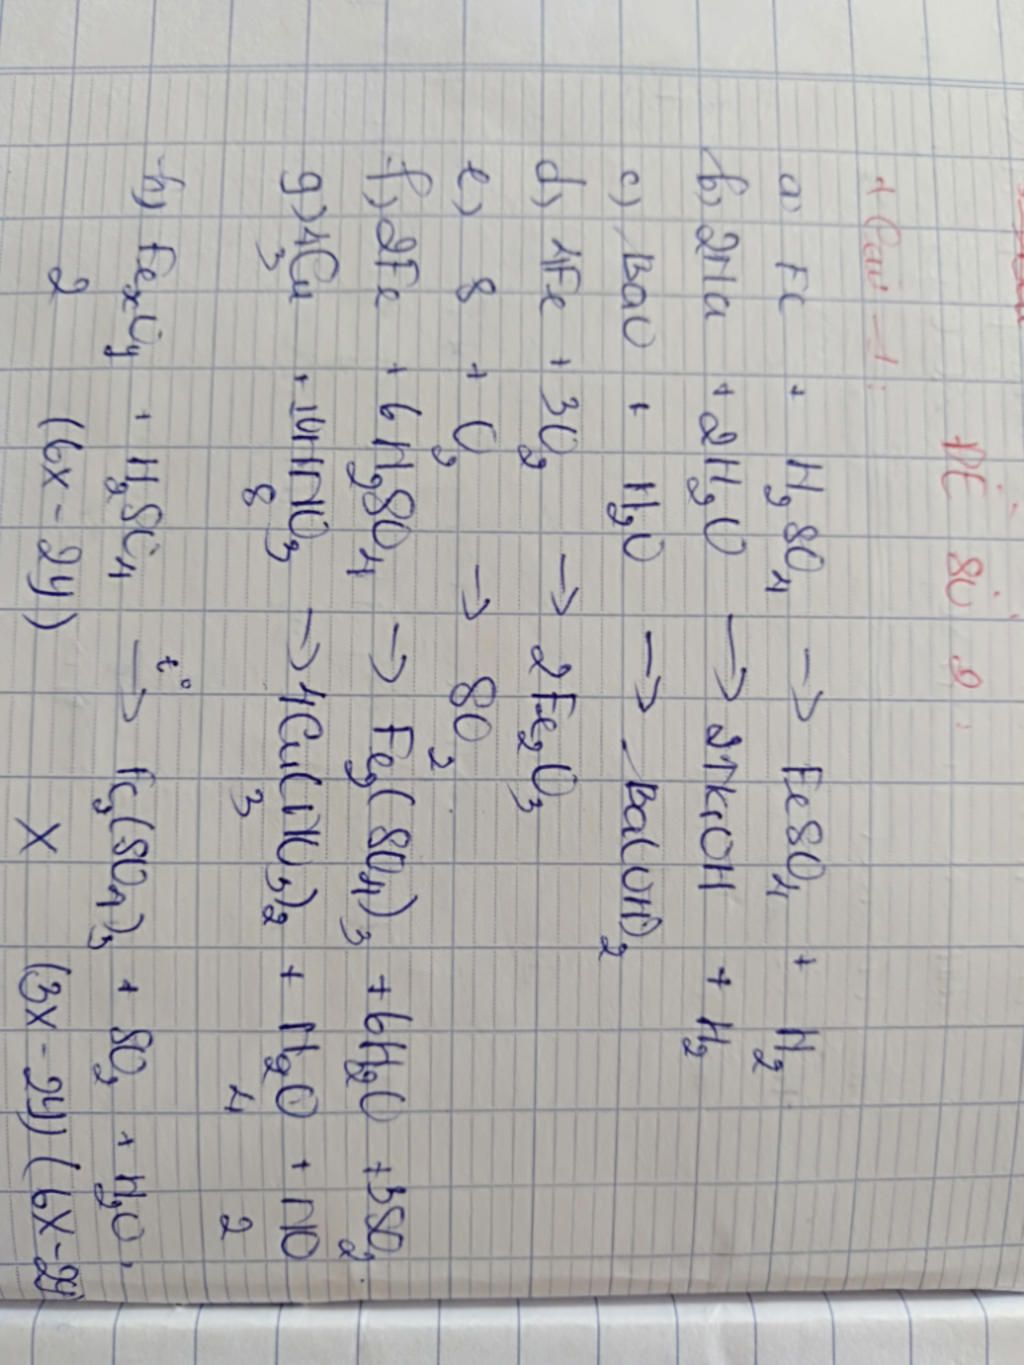 ĐỀ SỐ 9.
+ Câu 1:
a, Fe + H₂SO₄ → FeSO₄ + H₂
b, 2Na + 2H₂O → 2NaOH + H₂
c, BaO + H₂O → Ba(OH)₂
d, 4Fe + 3O₂ → 2Fe₂O₃
e, S + O₂ → SO₂
f, 2Fe + 6H₂SO₄ → Fe₂(SO₄)₃ + 6H₂O + 3SO₂.
g, 4Cu + 10HNO₃ → 4Cu(NO₃)₂ + H₂O + NO
3 8 3 4 2
t°
h, FexOy + H₂SO₄ → Fe₂(SO₄)₃ + SO₂ + H₂O.
2 (6x-2y) x (3x-2y) (6x-2y)